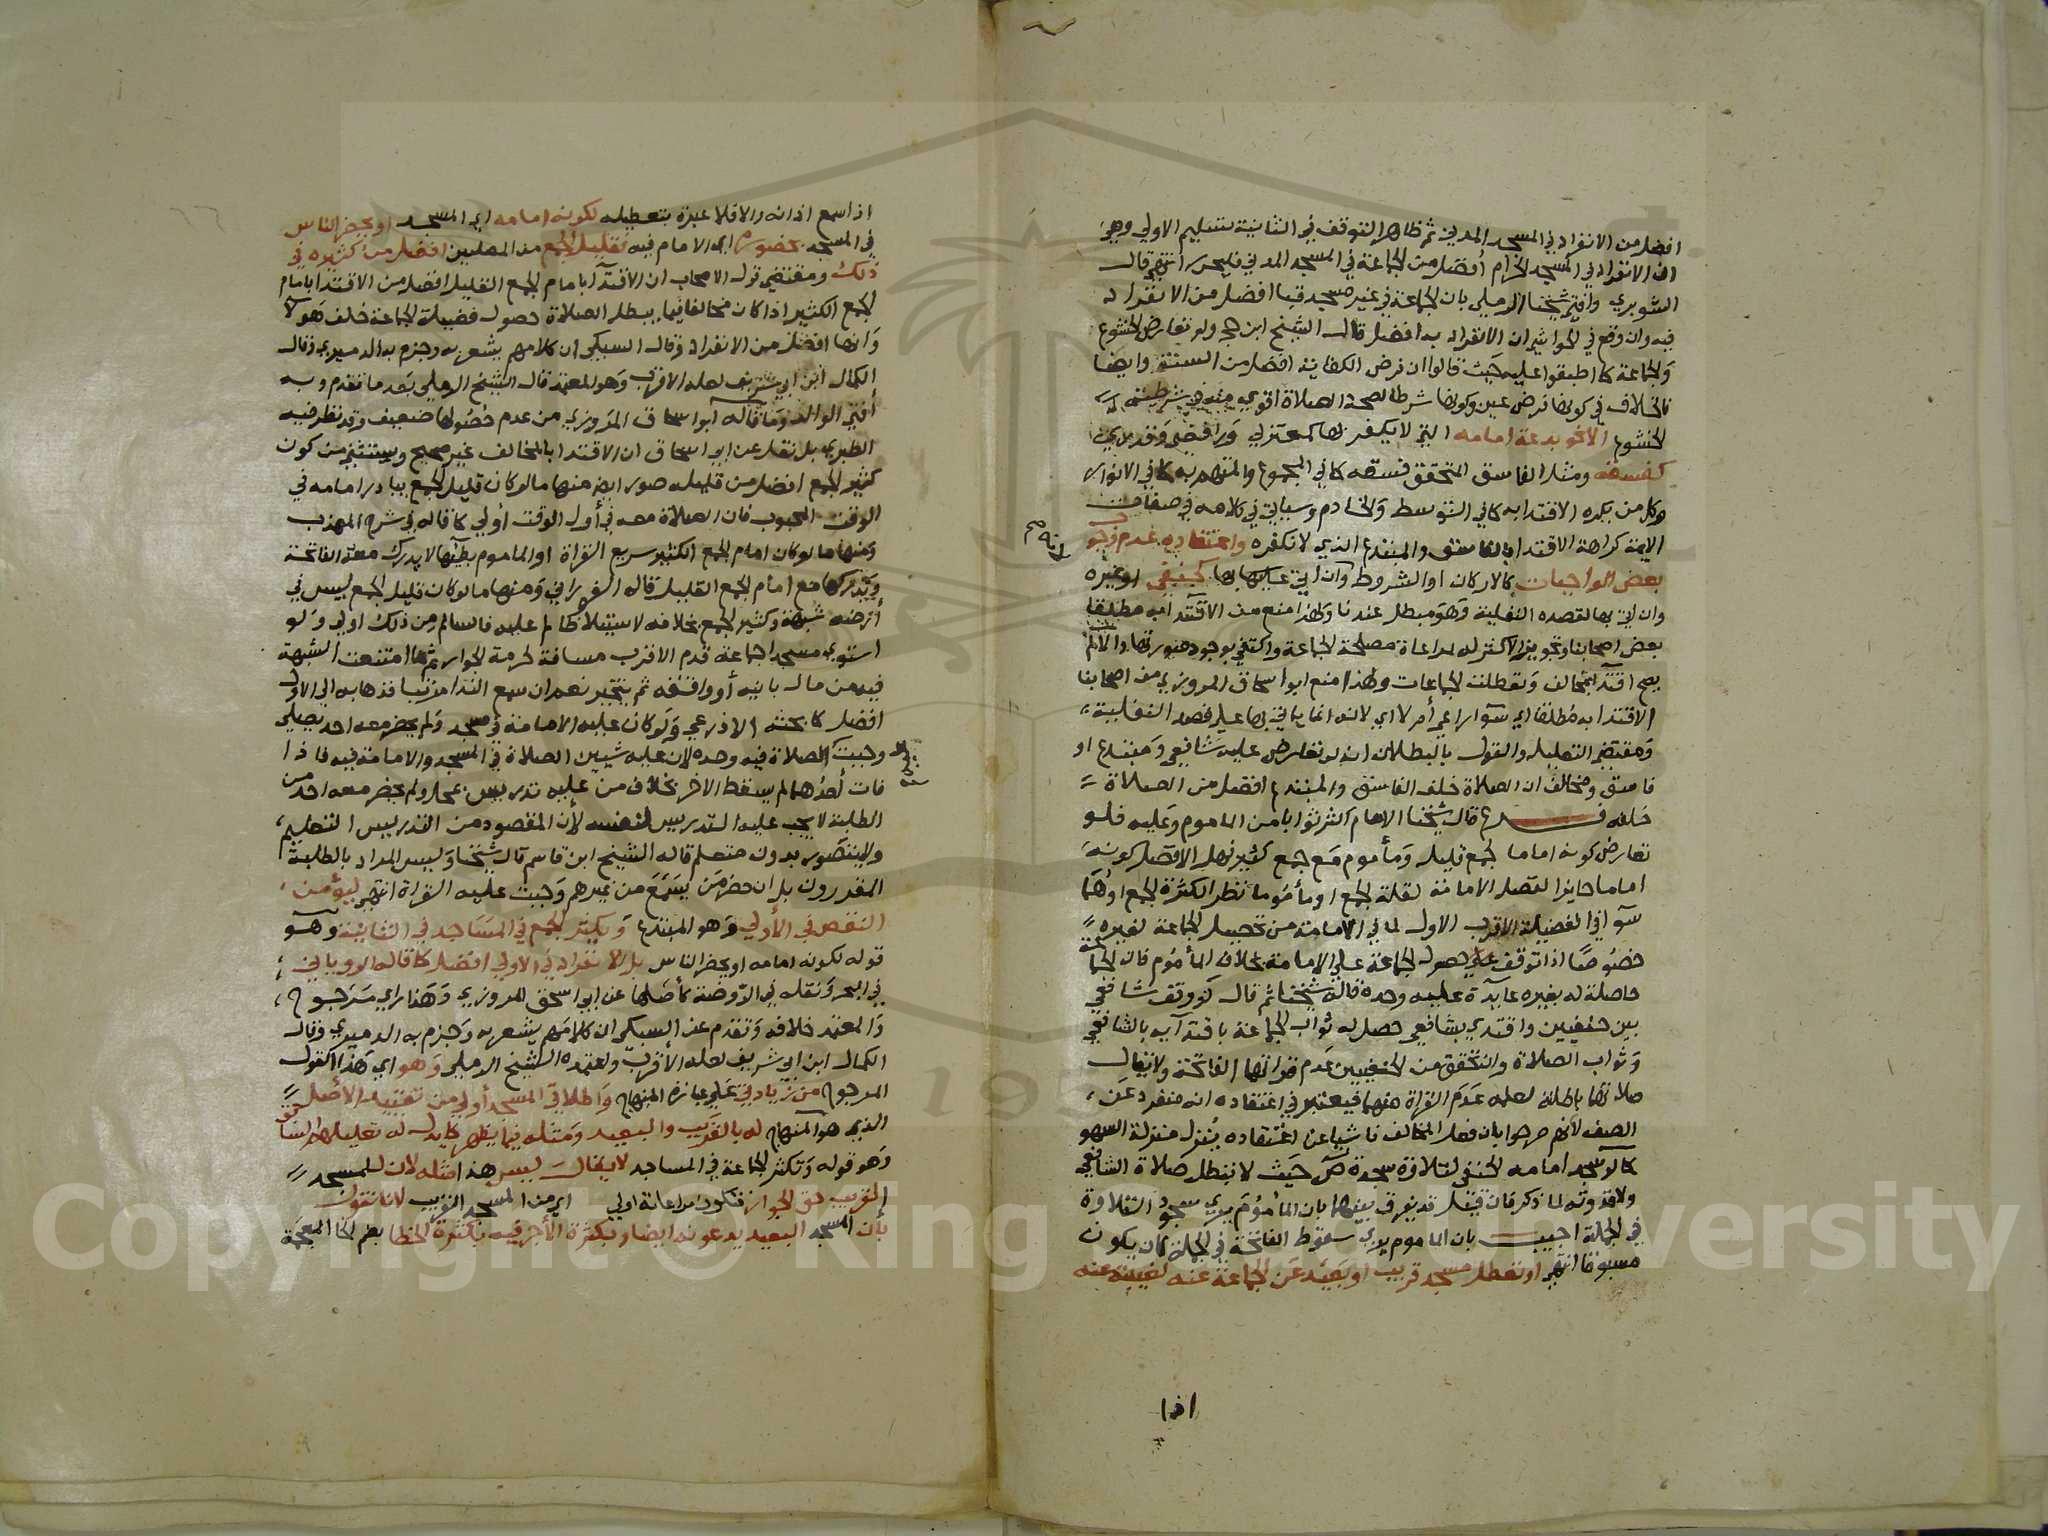 افضل من الانفراد في المسجد المدني ثم ظاهر التوقف في الثانية بتسليم الاولي وهي
ان الانفراد في المسجد الحرام أفضل من الجماعة في المسجد المدني فليحرر انتهى قال
الشوبري وافتى شيخنا الرملي بان الجماعة في غير مسجد قبا افضل من الانفراد
فيه وان وقع في الحواشي ان الانفراد به افضل قال الشيخ ابن حجر ولو تعارض الخشوع
والجماعة كما اطبقوا عليه حيث قالوا ان فرض الكفاية افضل من السنة وايضا
فالخلاف في كونها فرض عين وكونها شرطا لصحة الصلاة اقوى منه في شرطية
الخشوع الا نحو بدعة امامه التي لا يكفر بها كمعتزلي ورافضي وقدري
كفسقه ومثله الفاسق المتحقق فسقه كما في المجموع والمتهم به كما في الانوار
وكل من يكره الاقتدا به كما في التوسط والخادم وسياتي في كلامه في صفات
الائمة كراهة الاقتدا بالفاسق والمبتدع الذي لا نكفره واعتقاده عدم وجوب
بعض الواجبات كالاركان او الشروط وان اتى بها كحنفي او غيره
وان اتى بها لقصده النفلية وهو مبطل عندنا ولهذا منع من الاقتدا به مطلقا
بعض اصحابنا وتجويز الاكثر له لمراعاة مصلحة الجماعة واكتفي بوجود صورتها والا لم
يصح اقتدا بمخالف وتعطلت الجماعات ولهذا منع ابو اسحاق المروزي من اصحابنا
الاقتدا به مطلقا اي سوا راعى أمر لا اي لانه انما ياتي بها على قصد النفلية
ومقتضى التعليل والقول بالبطلان انه لو تعارض عليه شافعي ومبتدع او
فاسق ومخالف ان الصلاة خلف الفاسق والمبتدع افضل من الصلاة
خلفه فرع قال شيخنا الامام اكثر ثوابا من الماموم وعليه فلو
تعارض كونه اماما لجمع قليل ومأموم مع جمع كثير فهل الافضل كونه
اماما حايزا لفضل الامامة لقلة الجمع او مأموما نظرا لكثرة الجمع او هما
سوآ في الفضيلة الاقرب الاول لما في الامامة من تحصيل الجماعة لغيره
خصوصا اذا توقف على حصول الجماعة على الامامة بخلاف المأموم فان الجماعة
حاصلة له بغيره عايدة عليه وحده قاله شيخنا ثم قال لو وقف شافعي
بين حنفيين واقتدي بشافعي حصل له ثواب الجماعة باقتدآيه بالشافعي
وثواب الصلاة والمتحقق من الحنفيين عدم قراتها الفاتحة ولا يقال
صلاتهما باطلة لعلمه عدم القراة منهما فيعتبر في اعتقاده انه منفرد عن
الصف لأنهم صرحوا بان فعل المخالف ناشيا عن اعتقاده ينزل منزلة السهو
كما لو سجد امامه الحنفي لتلاوة سجدة ص حيث لا تبطل صلاة الشافعي
ولا قدوته لما ذكر فان قيل قد يفرق بينهما بان المأموم يرى سجود التلاوة
في الجملة اجيب بان الماموم يرى سقوط الفاتحة في الجملة كان يكون
مسبوقا انتهى او تعطل مسجد قريب او بعيد عن الجماعة عنه لغيبته عنه
اذا
اذا سمع اذانه والا فلا عبرة بتعطيله لكونه امامه اي المسجد او يحضر الناس
في المسجد بحضوره اي الامام فيه فقليل الجمع من المصلين افضل من كثيره في
ذلك ومقتضى قول الاصحاب ان الاقتدآ بامام الجمع القليل افضل من الاقتدا بامام
الجمع الكثير اذا كان مخالفا فيما يبطل الصلاة حصول فضيلة الجماعة خلف هولا
وانها افضل من الانفراد وقال السبكي ان كلامهم يشعر به وجزم به الدميري وقال
الكمال ابن ابي شريف لعله الاقرب وهو المعتمد قال الشيخ الرملي بعد ما تقدم وبه
أفتى الوالد وما قاله ابو اسحاق المروزي من عدم حصولها ضعيف وقد نظر فيه
الطبري بل نقل عن ابي اسحاق ان الاقتدا بالمخالف غير صحيح ويستثنى من كون
كثير الجمع افضل من قليله صور ايضا منها ما لو كان قليل الجمع يبادر امامه في
الوقت المحبوب فان الصلاة معه في أول الوقت أولى كما قاله في شرح المهذب
ومنها ما لو كان امام الجمع الكثير سريع القراة او الماموم بطيها لا يدرك معه الفاتحة
ويدركها مع امام الجمع القليل قاله الغزالي ومنها ما لو كان قليل الجمع ليس في
أرضه شبهة وكثير الجمع بخلافه لاستيلا ظالم عليه فالسالم من ذلك اولى ولو
استوى مسجدا جماعة قدم الاقرب مسافة لحرمة الجوار ثم ما انتفت الشبهة
فيه من مال بانيه أو واقفه ثم يتخير نعم ان سمع الندا مرتبا فذهابه الى الاول
افضل كما بحثه الاذرعي ولو كان عليه الامامة في مسجد ولم يحضر معه احد يصلي
وجبت الصلاة فيه وحده لان عليه شيين الصلاة في المسجد والامامة فيه فاذا
فات أحدهما لم يسقط الاخر بخلاف من عليه تدريس بمحل ولم يحضر معه احد من
الطلبة لا يجب عليه التدريس لنفسه لأن المقصود من التدريس التعليم
ولا يتصور بدون متعلم قاله الشيخ ابن قاسم قال شيخنا وليس المراد بالطلبة
المقررون بل ان حضر من يسمع من غيرهم وجبت عليه القراة انتهى ليؤمن
النقص في الأولى وهو المبتدع وتكثر الجمع في المساجد في الثانية وهو
قوله لكونه امامه او يحضر الناس بل الانفراد في الاولى افضل كما قاله الروياني
في البحر ونقله في الروضة كأصلها عن ابي اسحق المروزي وهذا راي مرجوح
والمعتمد خلافه وتقدم عن السبكي ان كلامهم يشعر به وجزم به الدميري وقال
الكمال ابن ابي شريف لعله الأقرب واعتمده الشيخ الرملي وهو اي هذا القول
المرجوح من زيادتي على عبارة المنهاج واطلاقي المسجد أولى من تقييد الأصل
الذي هو المنهاج له بالقريب والبعيد ومثله فيما يظهر كما يدل له تعليلهم السابق
وهو قوله وتكثر الجماعة في المساجد لا يقال ليس هذا مثله لان للمسجد
القريب حق الجوار فتكون مراعاته اولى اي من المسجد القريب لانا نقول
بأن المسجد البعيد يدعو له ايضا وبكثرة الأجر فيه بكثرة الخطا بضم الخا المعجمة